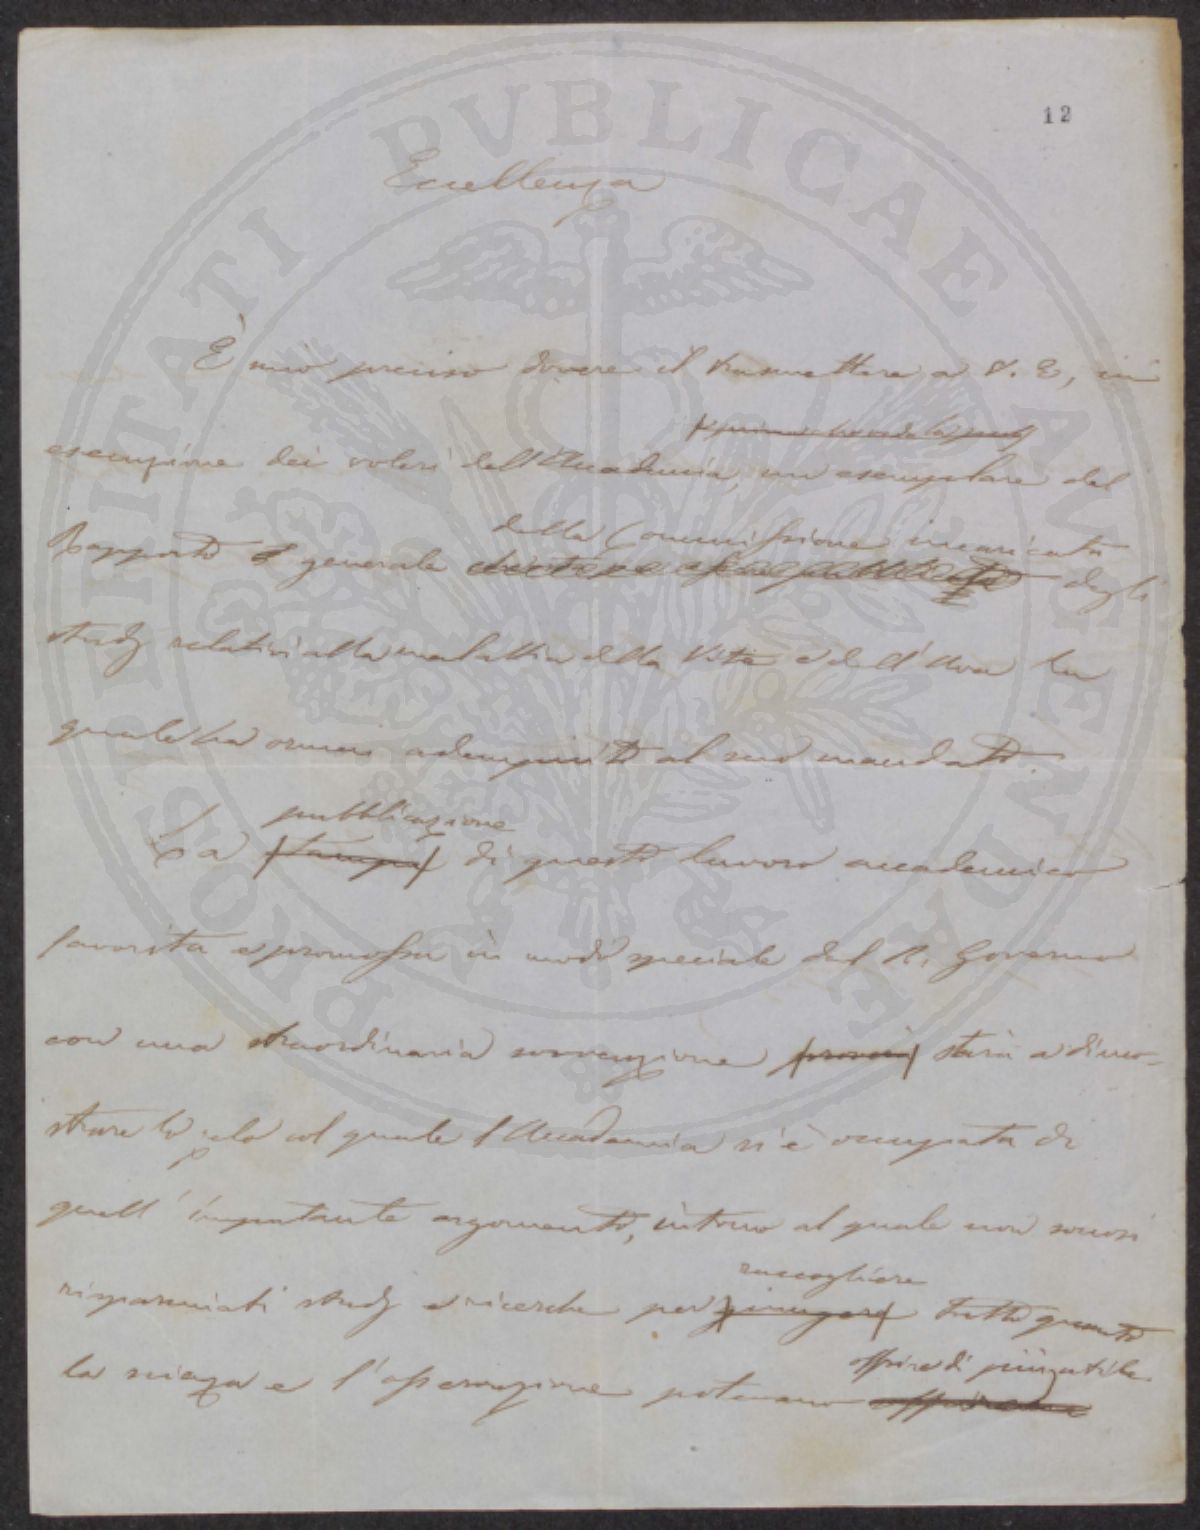 12
PROSPERITATI PVBLICAE AVGENDAE
Eccellenza
È mio preciso dovere il trasmettere a V. E, in
esecuzione dei voleri dell'Accademia, un esemplare del
della Commissione incaricata
Rapporto generale degli
studj relativi alla malattia della Vite e dell'Uva la
quale ha omai adempiuto al suo mandato.
pubblicazione
La stampa di questo lavoro accademico
favorita e promossa in modo speciale dal R. Governo
con una straordinaria sovvenzione starà a dimo-
strare lo zelo col quale l'Accademia si è occupata di
quell'importante argomento, intorno al quale non sonosi
raccogliere
risparmiati studj e ricerche per tutto quanto
offrire di più utile
la scienza e l'osservazione potevano